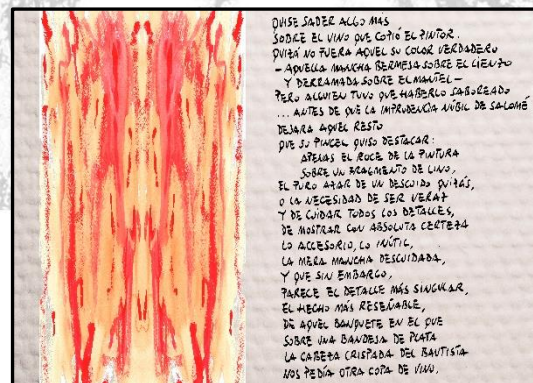 QUISE SABER ALGO MÁS
SOBRE EL VINO QUE COPIÓ EL PINTOR.
QUIZÁ NO FUERA AQUEL SU COLOR VERDADERO
– AQUELLA MANCHA BERMEJA SOBRE EL LIENZO
Y DERRAMADA SOBRE EL MANTEL –
PERO ALGUIEN TUVO QUE HABERLO SABOREADO
... ANTES DE QUE LA IMPRUDENCIA NÚBIL DE SALOMÉ
DEJARA AQUEL RESTO
QUE SU PINCEL QUISO DESTACAR:
APENAS EL ROCE DE LA PINTURA
SOBRE UN FRAGMENTO DE LINO,
EL PURO AZAR DE UN DESCUIDO QUIZÁS,
O LA NECESIDAD DE SER VERAZ
Y DE CUIDAR TODOS LOS DETALLES,
DE MOSTRAR CON ABSOLUTA CERTEZA
LO ACCESORIO, LO INÚTIL,
LA MERA MANCHA DESCUIDADA,
Y QUE SIN EMBARGO,
PARECE EL DETALLE MÁS SINGULAR,
EL HECHO MÁS RESEÑABLE,
DE AQUEL BANQUETE EN EL QUE
SOBRE UNA BANDEJA DE PLATA
LA CABEZA CRISPADA DEL BAUTISTA
NOS PEDÍA OTRA COPA DE VINO.